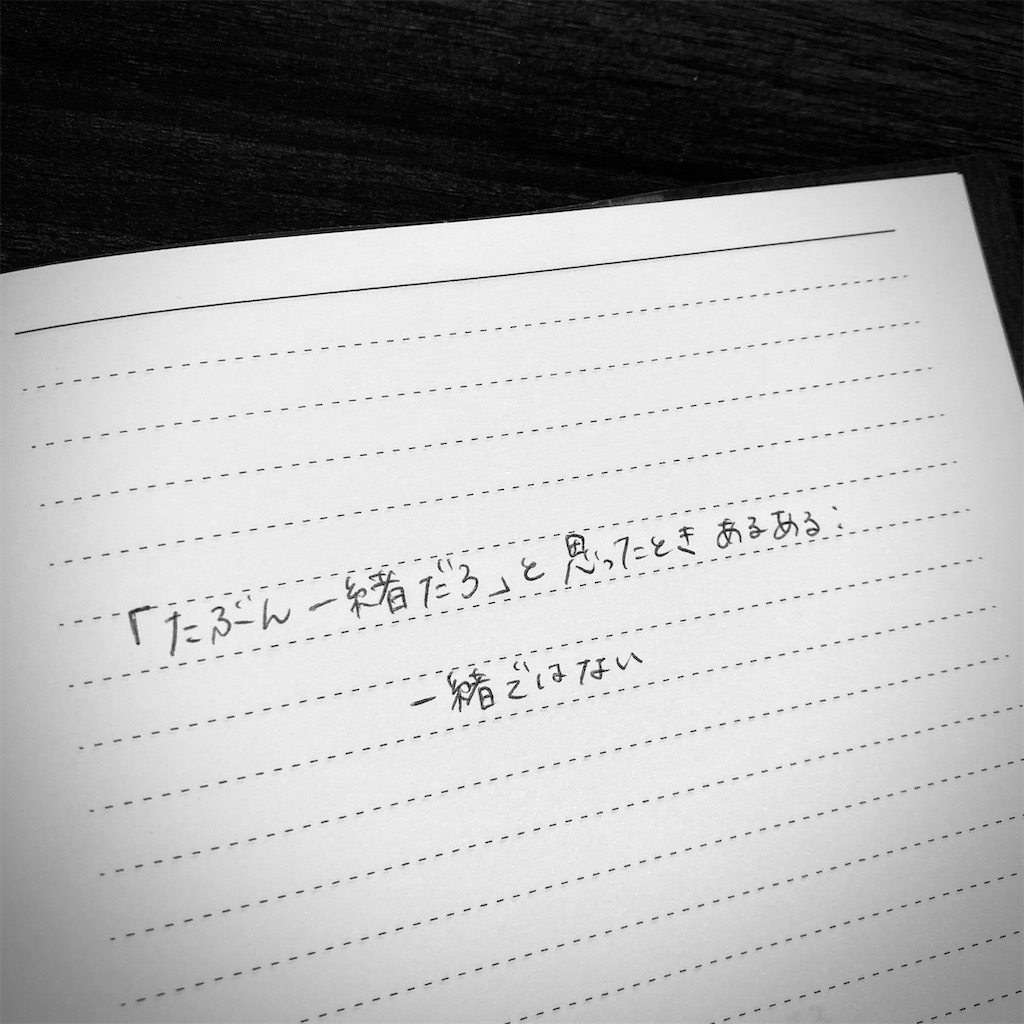 「たぶん一緒だろ」と思ったときあるある:
一緒ではない